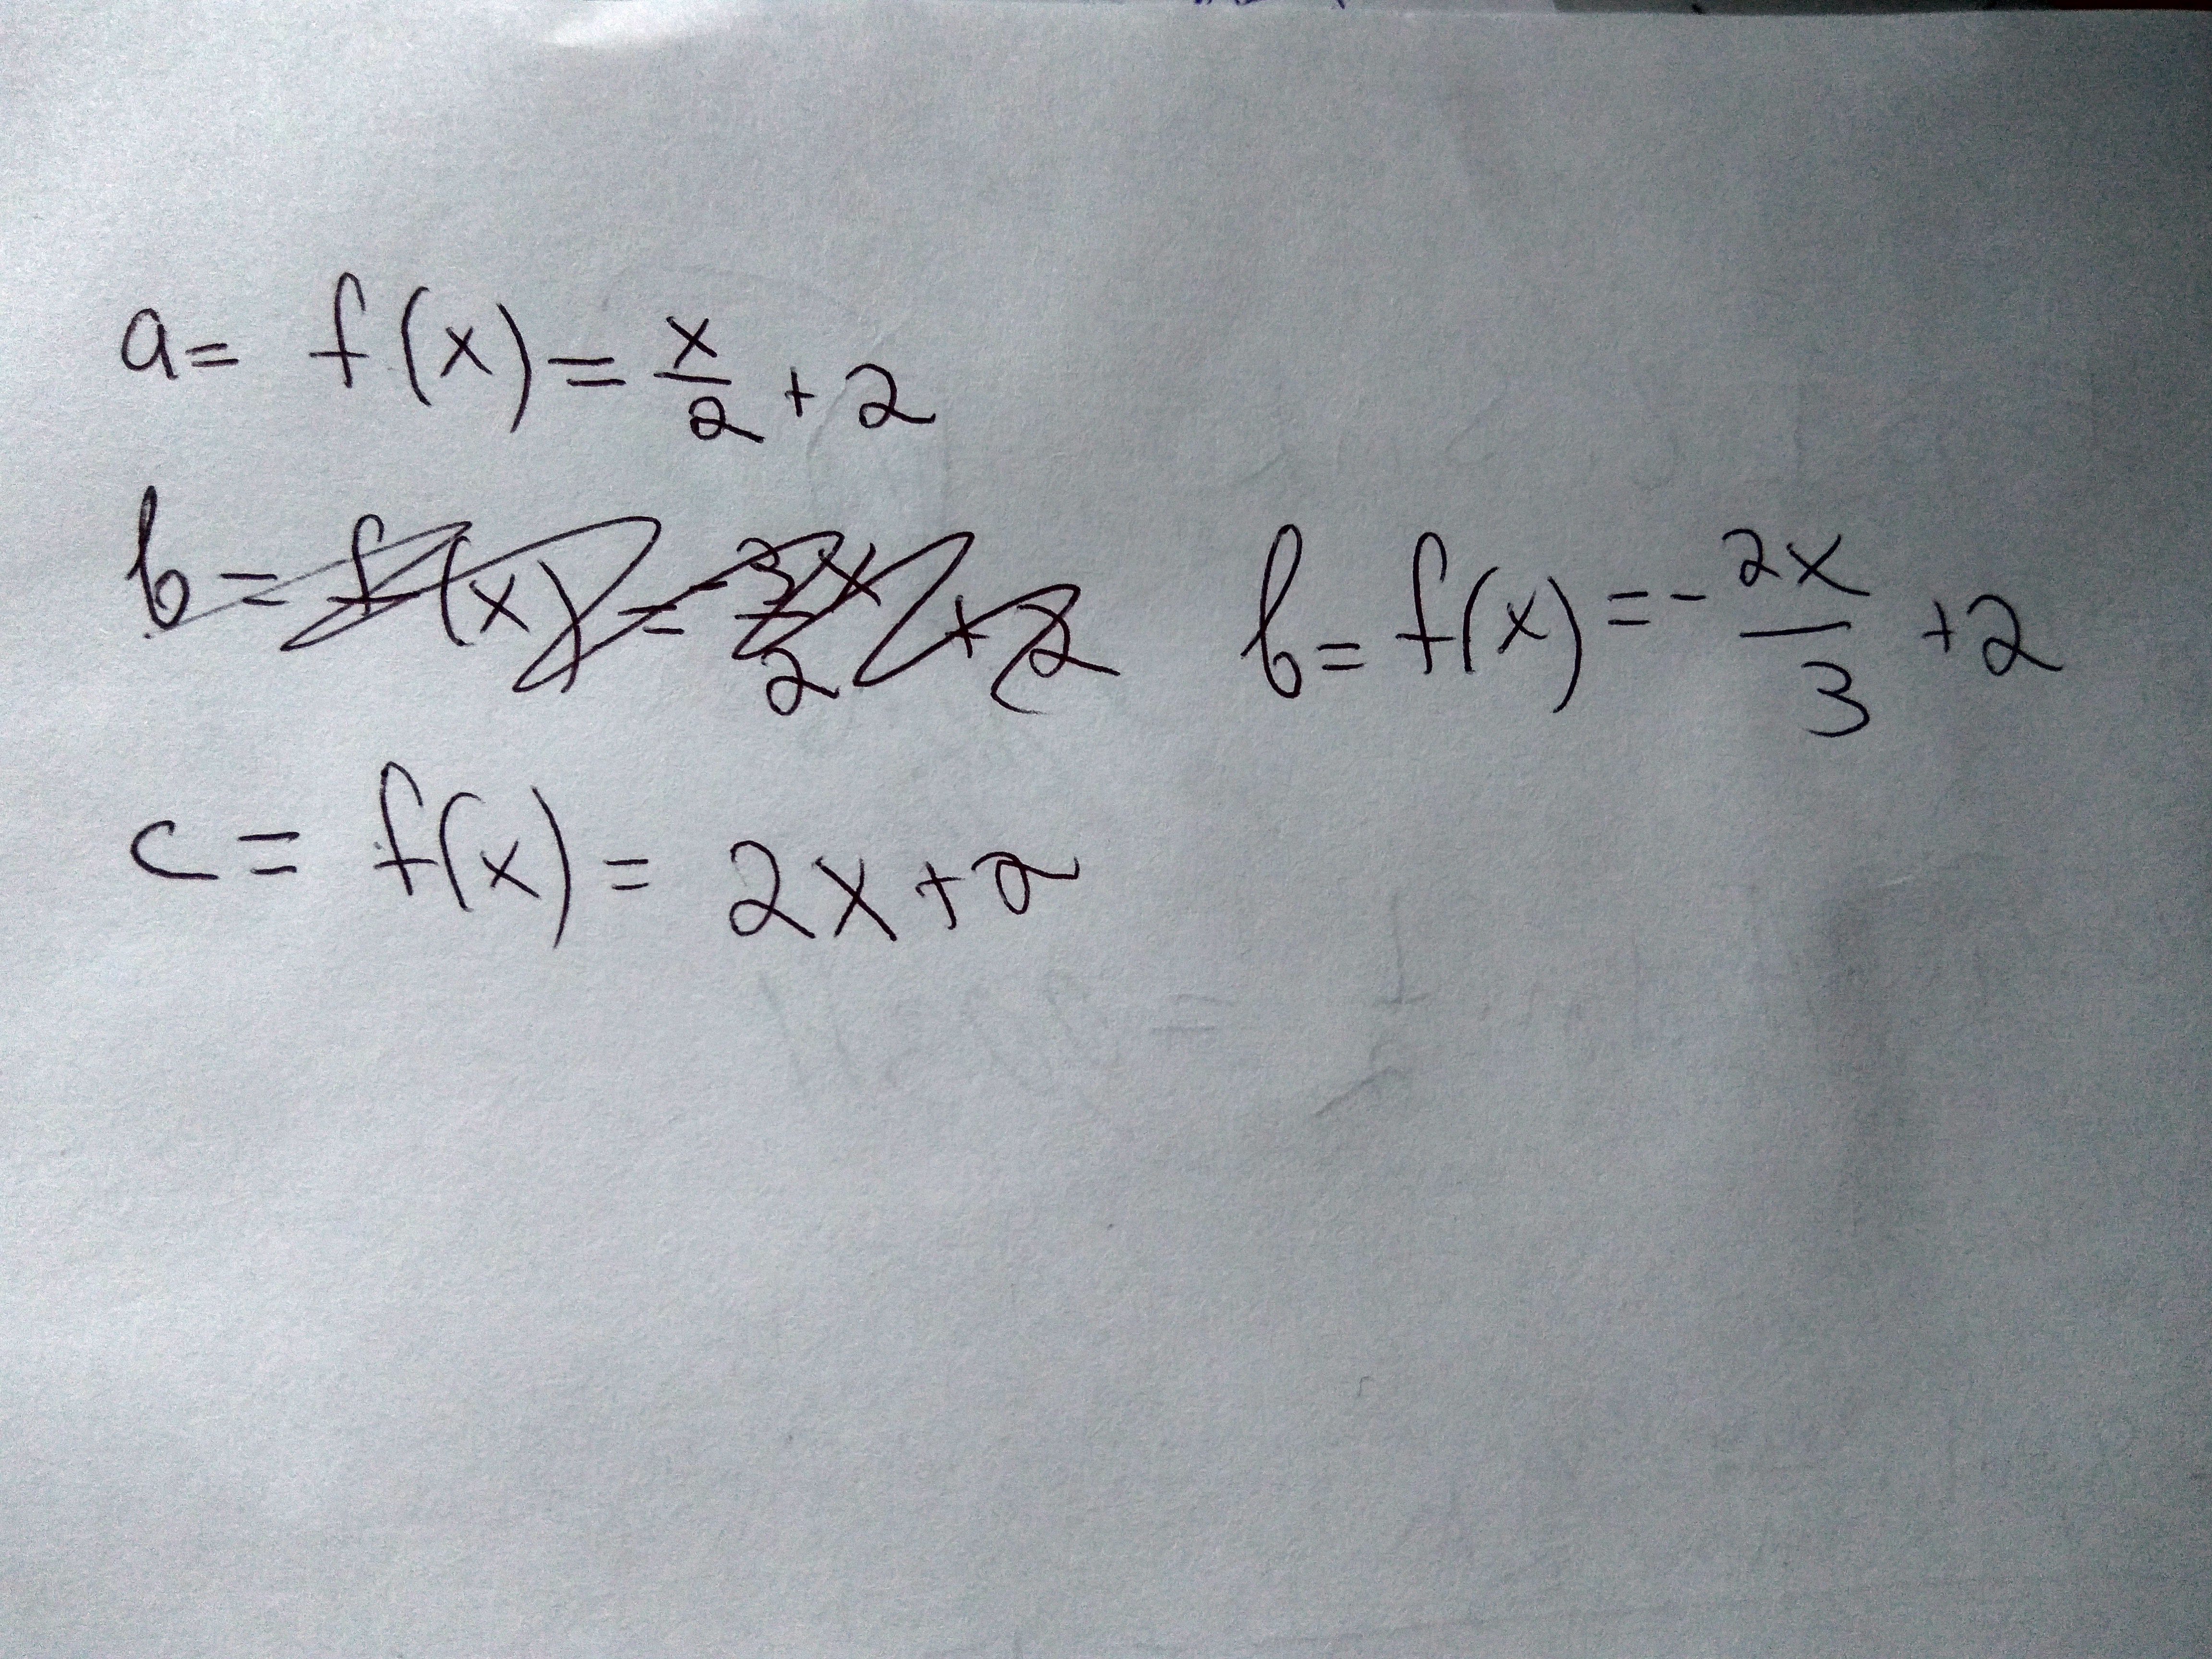 a= f(x) = x/2 + 2
b= f(x) = -2x/3 + 2
c = f(x) = 2x+2